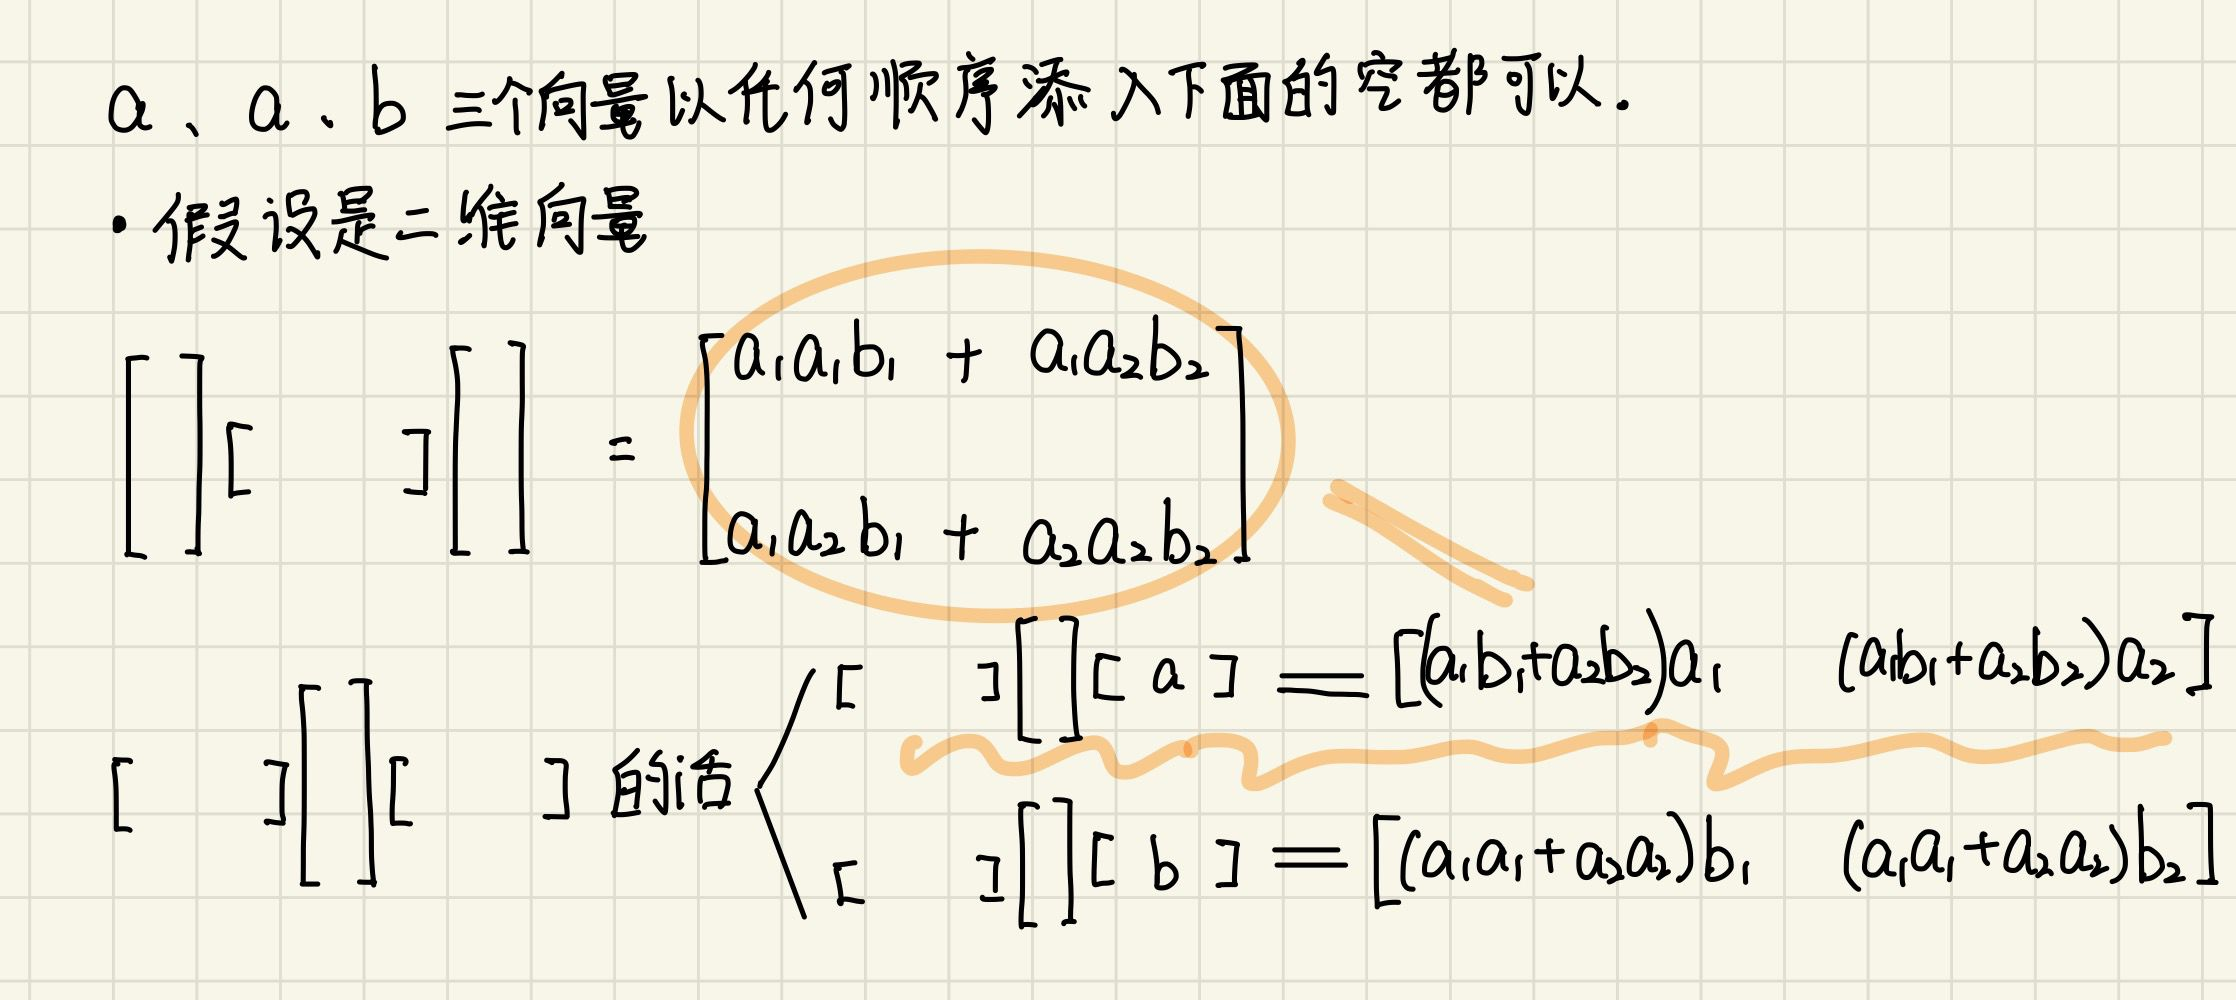 a、a、b 三个向量以任何顺序添入下面的空都可以.
• 假设是二维向量
[ ][ ][ ] = [a₁a₁b₁ + a₁a₂b₂
a₁a₂b₁ + a₂a₂b₂]
[ ][ ][ a ] = [(a₁b₁+a₂b₂)a₁ (a₁b₁+a₂b₂)a₂]
[ ][ ][ ] 的话
[ ][ ][ b ] = [(a₁a₁+a₂a₂)b₁ (a₁a₁+a₂a₂)b₂]